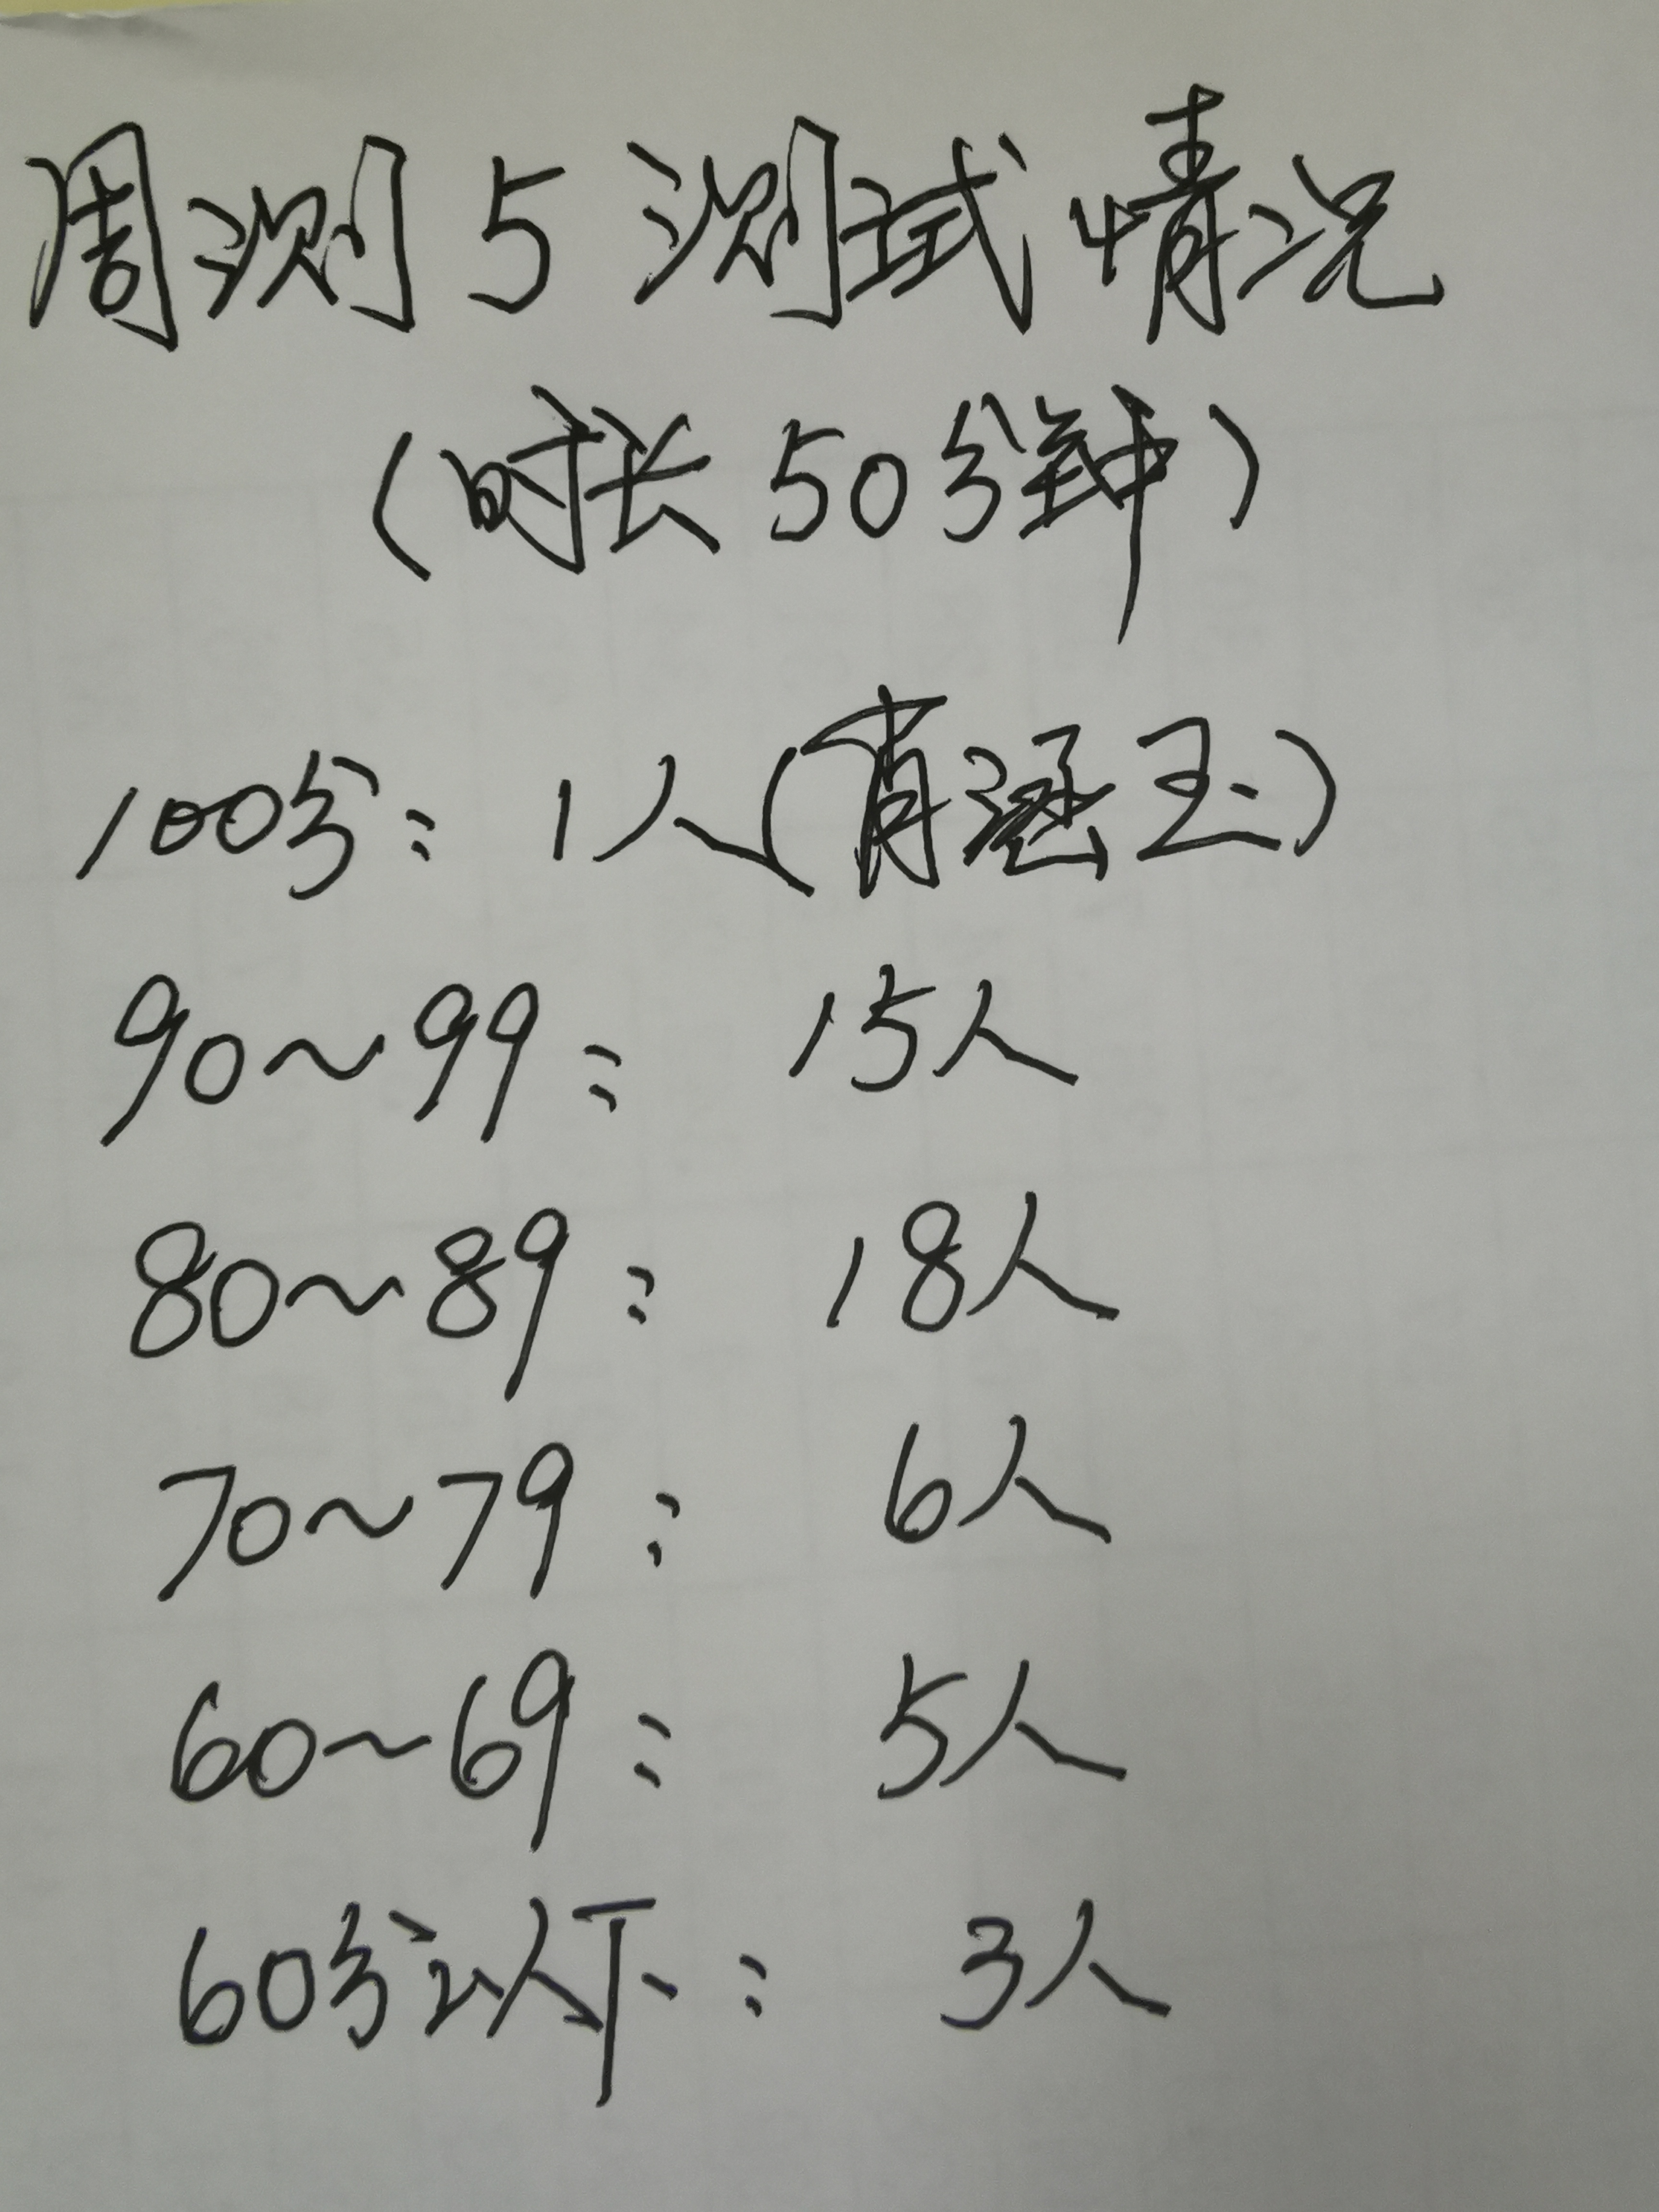 周测5测试情况
(时长50分钟)
100分: 1人(肖涵玉)
90~99: 15人
80~89: 18人
70~79: 6人
60~69: 5人
60分以下: 3人